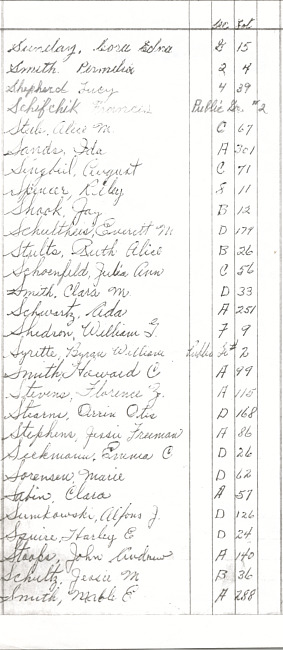 Sec. Lot
Sunday, Cora Edna G 15
Smith Permelia 2 4
Shepherd Lucy 4 39
Schefchik Frances Public Gr. #2
Steele, Alice M. C 67
Sands, Ida A 301
August C 71
Spencer, Riley 11
Shook, Jay B 12
Schultheis, Everett M D 179
Stults, Ruth Alice B 26
Schoenfeld, Julia Ann C 56
Smith, Clara M. D 33
Schwartz, Ada A 251
Shedron, William G. F 9
Syrette, Byran William Public #2
Smith, Howard C A 99
Stevens, Florence A 115
Stearns, Orrin Otis D 168
Stephens, Jessie Freeman A 86
Seekmann, Emma C D 26
Sorensen, Marie D 62
Sabin, Clara A 57
Sumkowski, Alfons J. D 126
Squire, Harley E D 24
John Andrew A 140
Schultz, Jessie M B 36
Smith, Mable E A 288